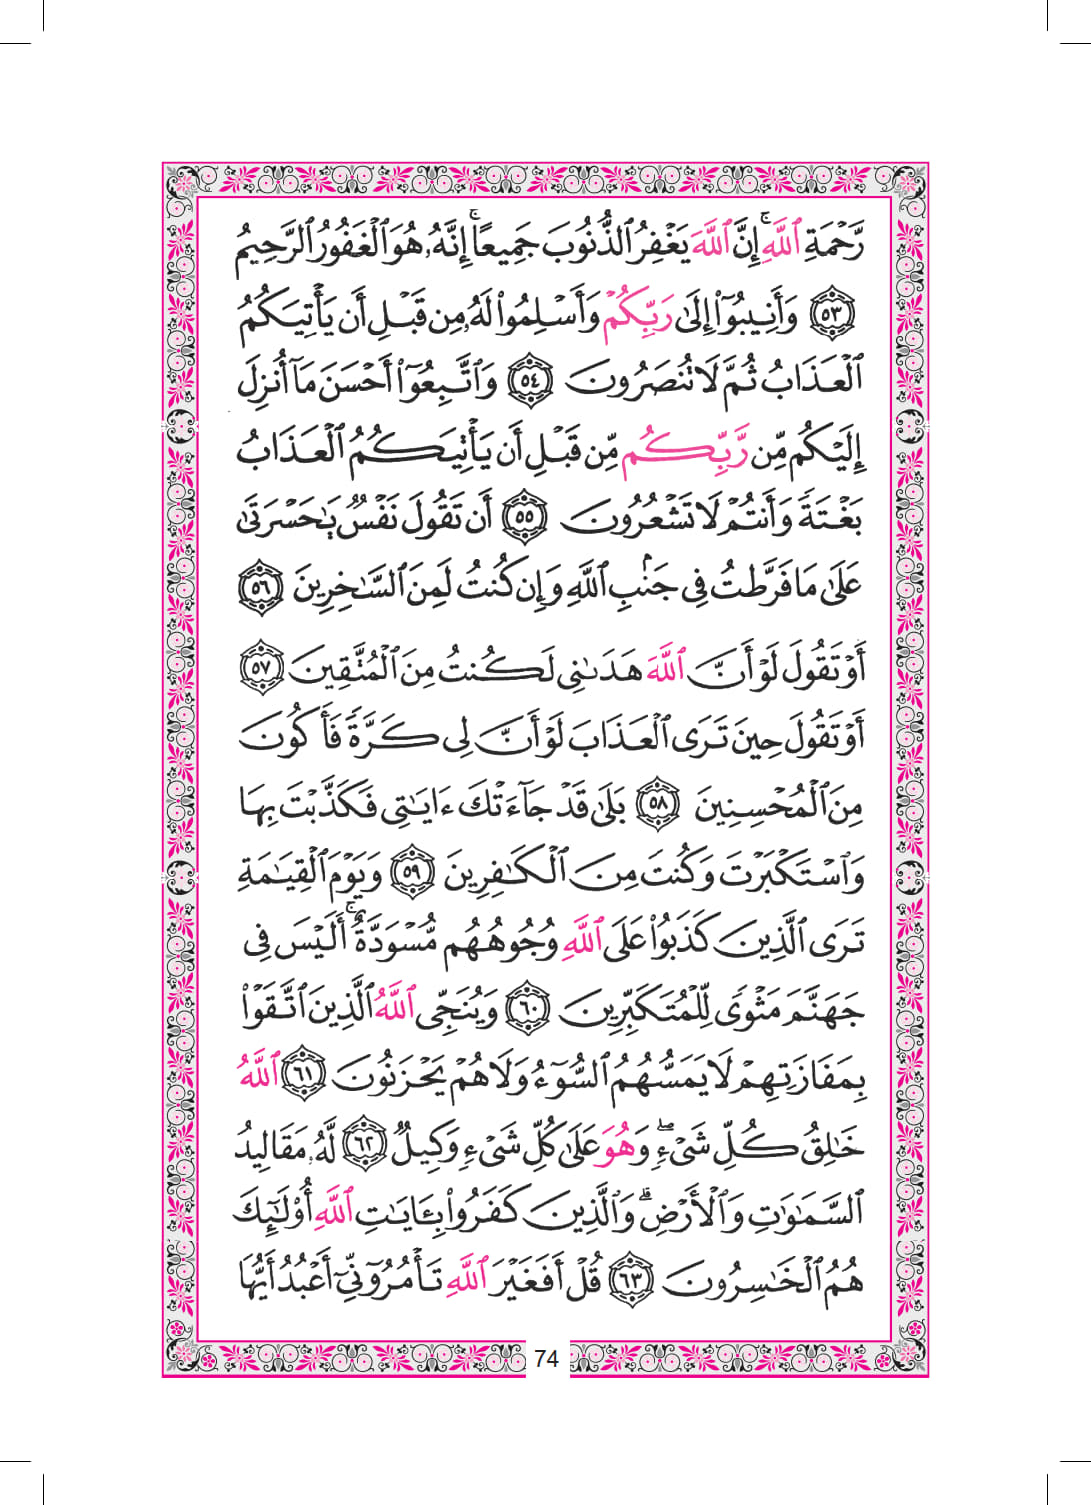 رَّحْمَةِ ٱللَّهِۚ إِنَّ ٱللَّهَ يَغْفِرُ ٱلذُّنُوبَ جَمِيعًاۚ إِنَّهُۥ هُوَ ٱلْغَفُورُ ٱلرَّحِيمُ
٥٣ وَأَنِيبُوٓا۟ إِلَىٰ رَبِّكُمْ وَأَسْلِمُوا۟ لَهُۥ مِن قَبْلِ أَن يَأْتِيَكُمُ
ٱلْعَذَابُ ثُمَّ لَا تُنصَرُونَ ٥٤ وَٱتَّبِعُوٓا۟ أَحْسَنَ مَآ أُنزِلَ
إِلَيْكُم مِّن رَّبِّكُم مِّن قَبْلِ أَن يَأْتِيَكُمُ ٱلْعَذَابُ
بَغْتَةً وَأَنتُمْ لَا تَشْعُرُونَ ٥٥ أَن تَقُولَ نَفْسٌ يَٰحَسْرَتَىٰ
عَلَىٰ مَا فَرَّطتُ فِى جَنۢبِ ٱللَّهِ وَإِن كُنتُ لَمِنَ ٱلسَّٰخِرِينَ ٥٦
أَوْ تَقُولَ لَوْ أَنَّ ٱللَّهَ هَدَىٰنِى لَكُنتُ مِنَ ٱلْمُتَّقِينَ ٥٧
أَوْ تَقُولَ حِينَ تَرَى ٱلْعَذَابَ لَوْ أَنَّ لِى كَرَّةً فَأَكُونَ
مِنَ ٱلْمُحْسِنِينَ ٥٨ بَلَىٰ قَدْ جَآءَتْكَ ءَايَٰتِى فَكَذَّبْتَ بِهَا
وَٱسْتَكْبَرْتَ وَكُنتَ مِنَ ٱلْكَٰفِرِينَ ٥٩ وَيَوْمَ ٱلْقِيَٰمَةِ
تَرَى ٱلَّذِينَ كَذَبُوا۟ عَلَى ٱللَّهِ وُجُوهُهُم مُّسْوَدَّةٌۚ أَلَيْسَ فِى
جَهَنَّمَ مَثْوًى لِّلْمُتَكَبِّرِينَ ٦٠ وَيُنَجِّى ٱللَّهُ ٱلَّذِينَ ٱتَّقَوْا۟
بِمَفَازَتِهِمْ لَا يَمَسُّهُمُ ٱلسُّوٓءُ وَلَا هُمْ يَحْزَنُونَ ٦١ ٱللَّهُ
خَٰلِقُ كُلِّ شَىْءٍۖ وَهُوَ عَلَىٰ كُلِّ شَىْءٍ وَكِيلٌ ٦٢ لَّهُۥ مَقَالِيدُ
ٱلسَّمَٰوَٰتِ وَٱلْأَرْضِۗ وَٱلَّذِينَ كَفَرُوا۟ بِـَٔايَٰتِ ٱللَّهِ أُو۟لَٰٓئِكَ
هُمُ ٱلْخَٰسِرُونَ ٦٣ قُلْ أَفَغَيْرَ ٱللَّهِ تَأْمُرُوٓنِّىٓ أَعْبُدُ أَيُّهَا
74